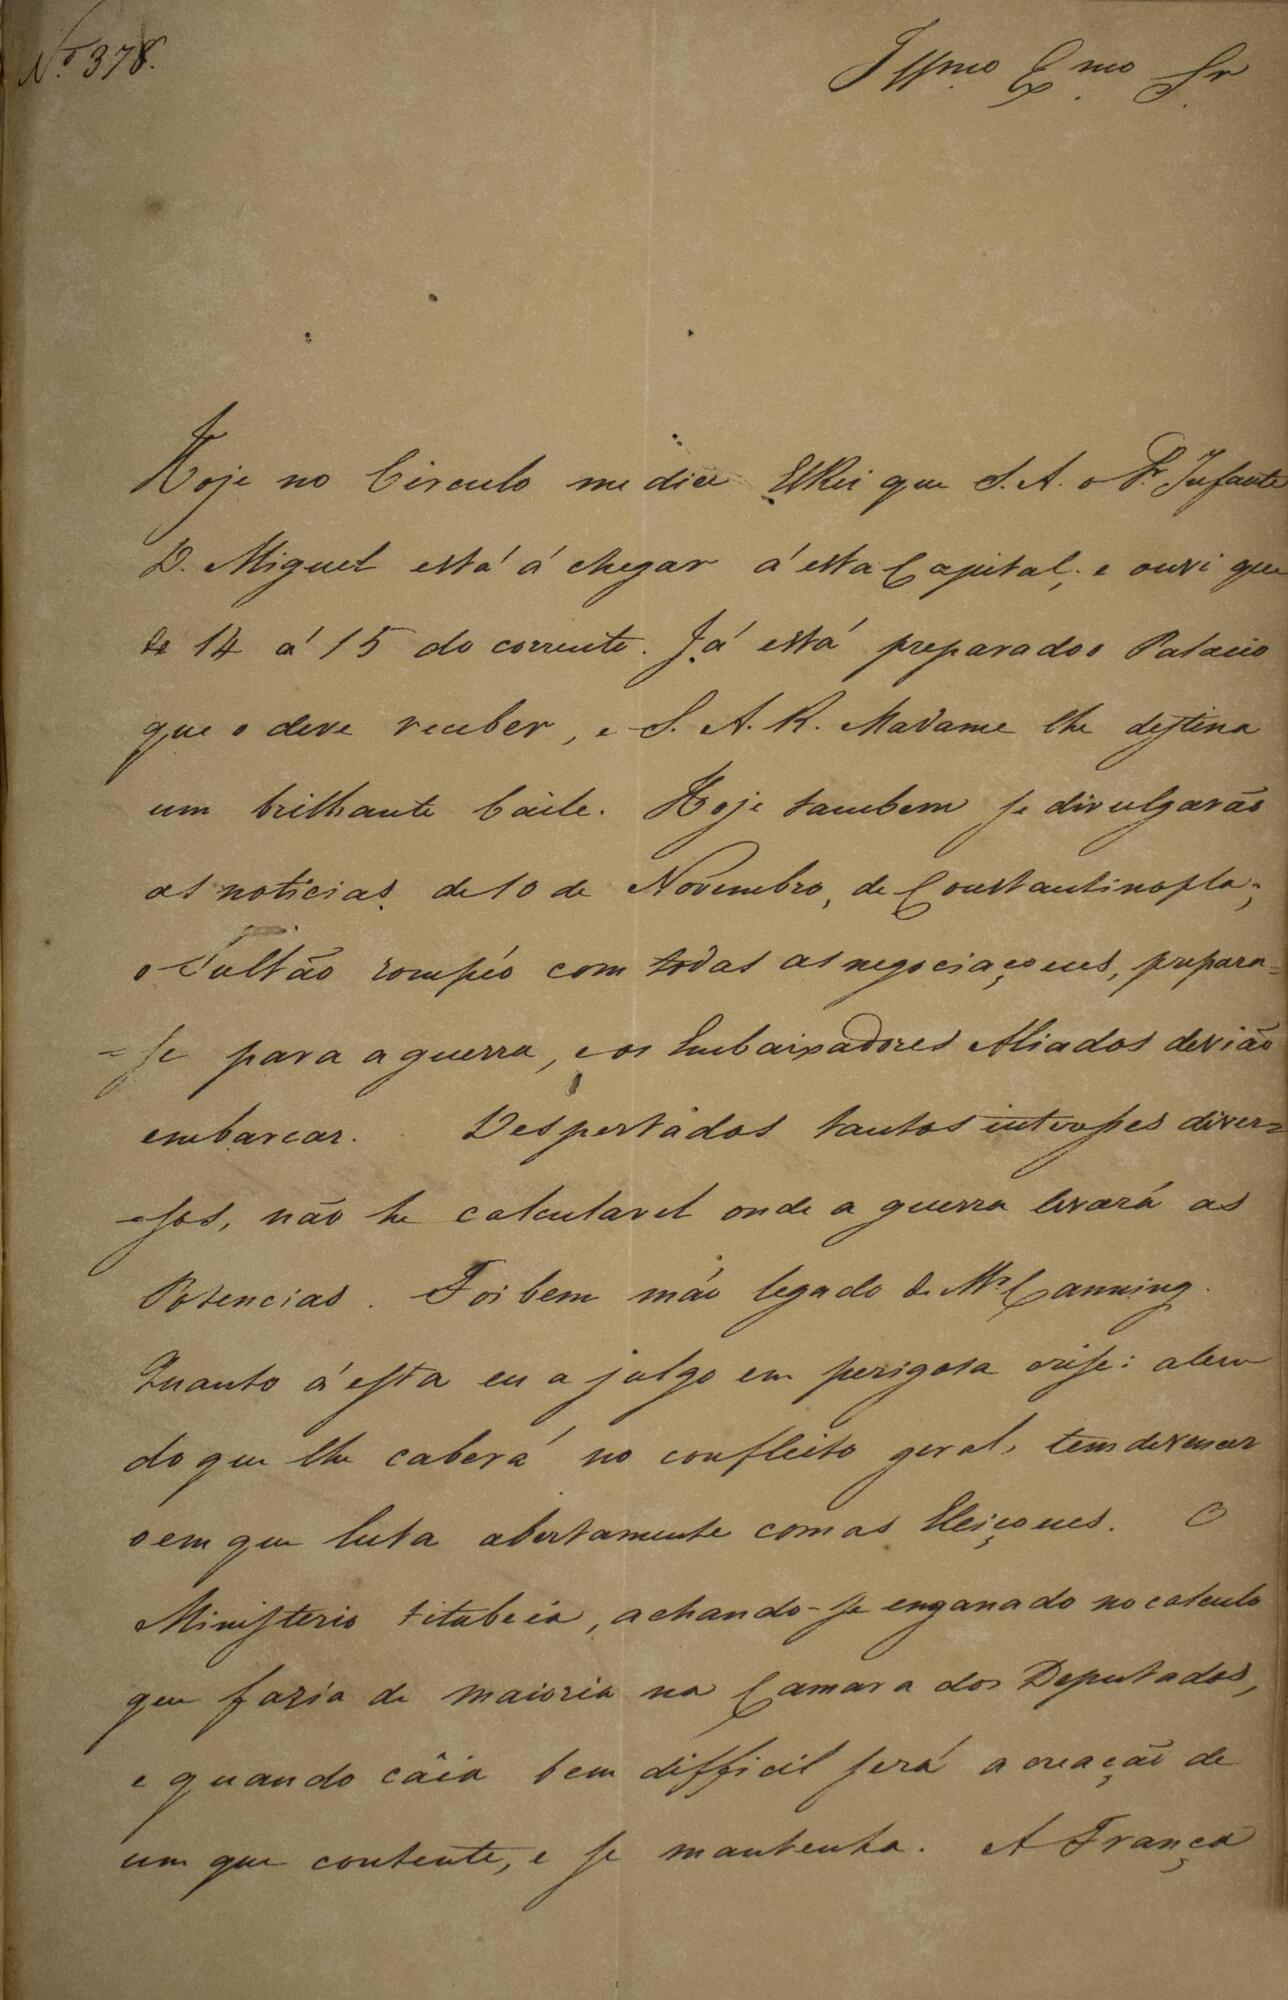 Nº 378.
Illmo Exmo Sr
Hoje no Circulo me dice ElRei que S. A. o Sr. Infante
D. Miguel está á chegar á esta Capital, e ouvi que
de 14 á 15 do corrente. Já está preparado o Palacio
que o deve receber, e S. A. R. Madame lhe destina
um brilhante baile. Hoje tambem se divulgarão
as noticias de 10 de Novembro, de Constantinopla;
o Sultão rompéo com todas as negociaçoens, prepara-
-se para a guerra, e os Embaixadores Alliados devião
embarcar. Despertados tantos interesses diver=
=sos, não he calculavel onde a guerra levará as
Potencias. Foi bem máo legado de Mr. Canning.
Quanto á esta eu a julgo em perigosa crise: alem
do que lhe caberá no conflicto geral, tem de vencer
o em que luta abertamente com as Eleiçoens. O
Ministerio titubeia, achando-se enganado no calculo
que fazia de maioria na Camara dos Deputados,
e quando câia bem difficil será a creação de
um que contente, e se mantenha. A França